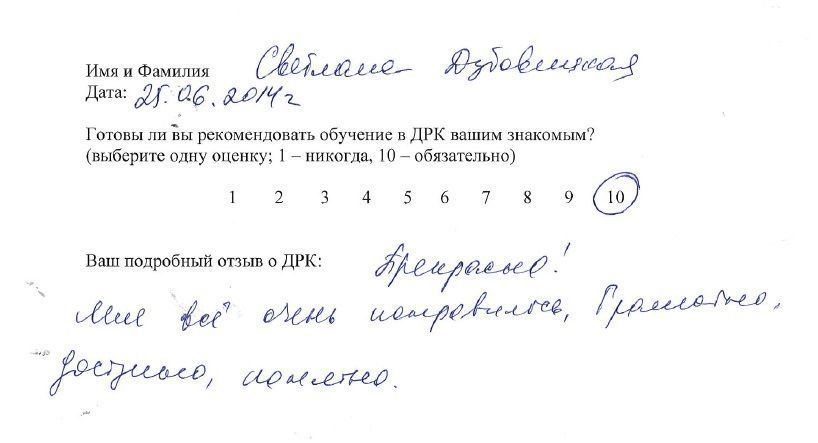 Имя и Фамилия Светлана Дубовицкая
Дата: 25.06.2014г
Готовы ли вы рекомендовать обучение в ДРК вашим знакомым?
(выберите одну оценку; 1 – никогда, 10 – обязательно)
1 2 3 4 5 6 7 8 9 10
Ваш подробный отзыв о ДРК: Прекрасно!
Мне всё очень понравилось, Грамотно,
доступно, понятно.